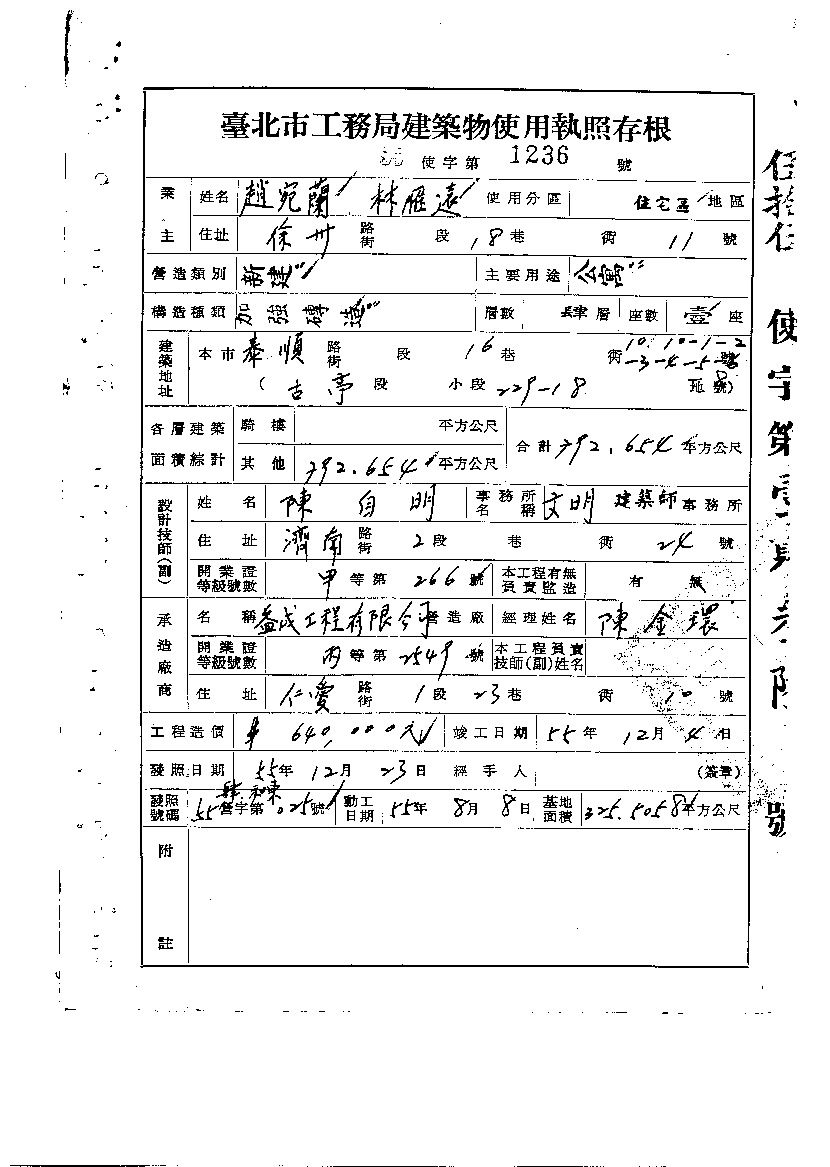 臺北市工務局建築物使用執照存根
使字第 1236 號
業主 姓名 趙宛蘭 林雁遠 使用分區 住宅區 地區
住址 徐州 路街 段 18 巷 衖 11 號
營造類別 新建 主要用途 公寓
構造種類 加強磚造 層數 肆層 座數 壹座
建築地址 本市 泰順 路街 段 16 巷 衖 10.10-1-2-3-4-5-6 號
(古亭段 小段 229-18 地號)
各層建築面積綜計 騎樓 平方公尺 合計 792.654 平方公尺
其他 792.654 平方公尺
設計技師(副) 姓名 陳自明 事務所名稱 文明 建築師 事務所
住址 濟南 路街 2段 巷 衖 24 號
開業證等級號數 甲等第 266 號 本工程有無負責監造 有 無
承造廠商 名稱 益成工程有限公司 營造廠 經理姓名 陳金環
開業證等級號數 丙等第 2549 號 本工程負責技師(副)姓名
住址 仁愛 路街 1段 23巷 衖 10 號
工程造價 $ 640,000元 竣工日期 55年 12月 4日
發照日期 55年 12月 23日 經手人 (簽章)
發照號碼 55 營字第 025號 動工日期 55年 8月 8日 基地面積 325.5058 平方公尺
附註
使字第
號